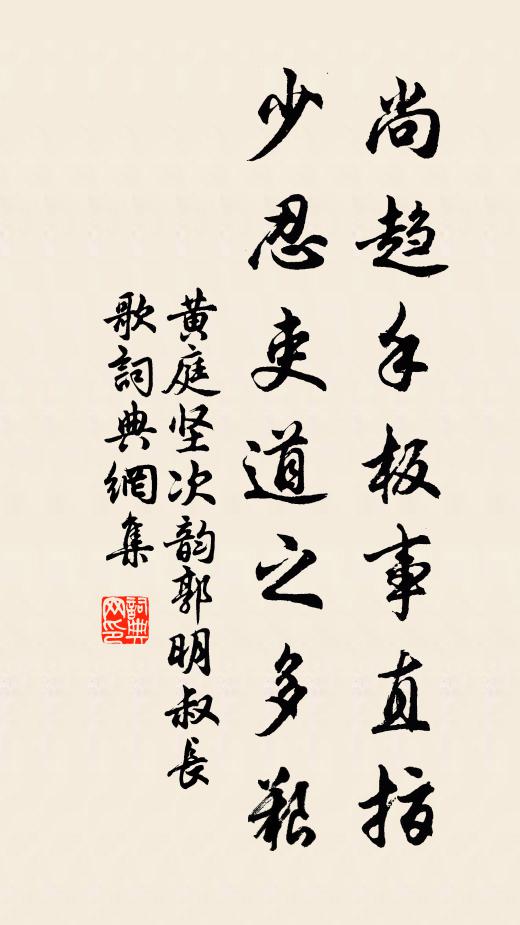 尚趋手板事直指
少忍吏道之多艰
黄庭坚次韵郭明叔长
歌詞典網集
詞典
网印